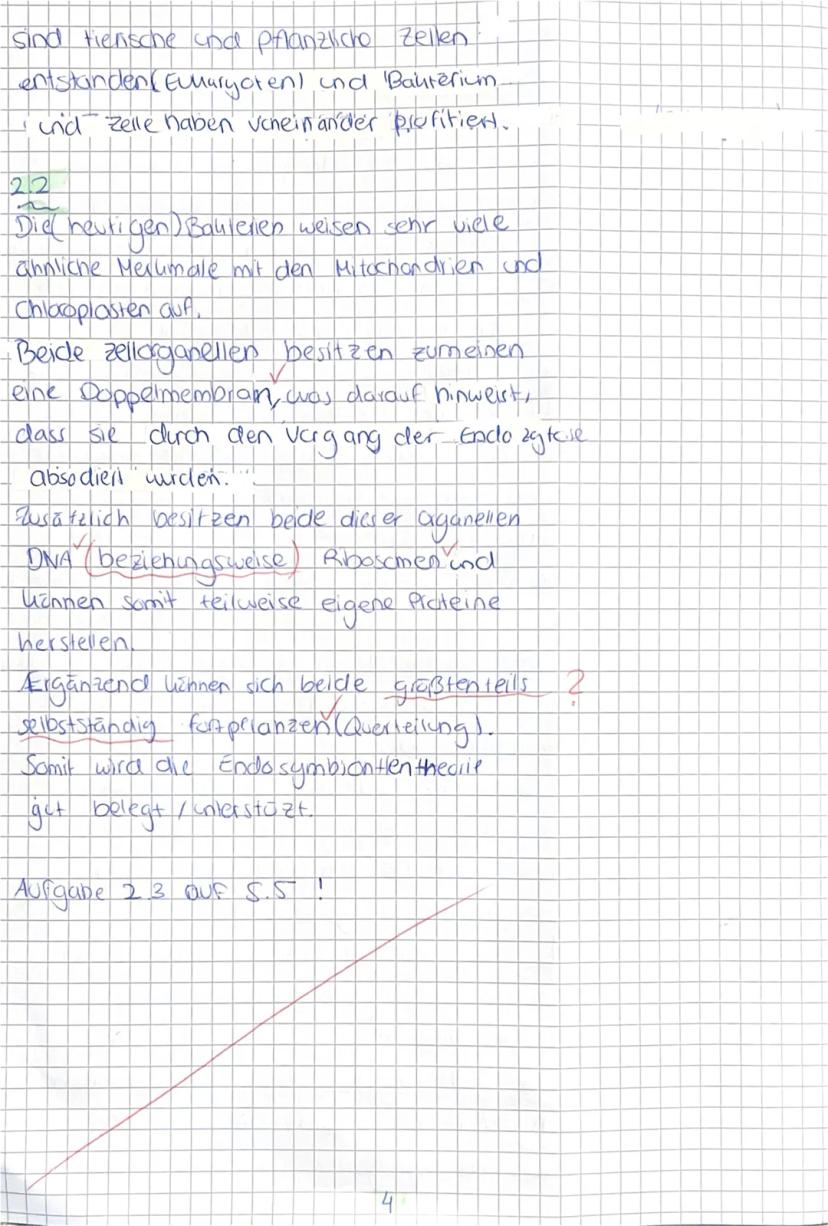 sind tierische und pflanzliche Zellen
entstanden (Eukaryoten) und Bakterium
und Zelle haben voneinander profitiert.
2.2
Die (heutigen) Bakterien weisen sehr viele
ähnliche Merkmale mit den Mitochondrien und
Chloroplasten auf.
Beide Zellorganellen besitzen zumeinen
eine Doppelmembran, was darauf hinweist,
dass sie durch den Vorgang der Endozytose
wurden.
Zusätzlich besitzen beide dieser Organellen
DNA (beziehungsweise) Ribosomen und
können somit teilweise eigene Proteine
herstellen.
Ergänzend können sich beide größtenteils ?
selbstständig fortpflanzen (Querteilung).
Somit wird die Endosymbiontentheorie
gut belegt / unterstüzt.
Aufgabe 2.3 auf S.5 !
4